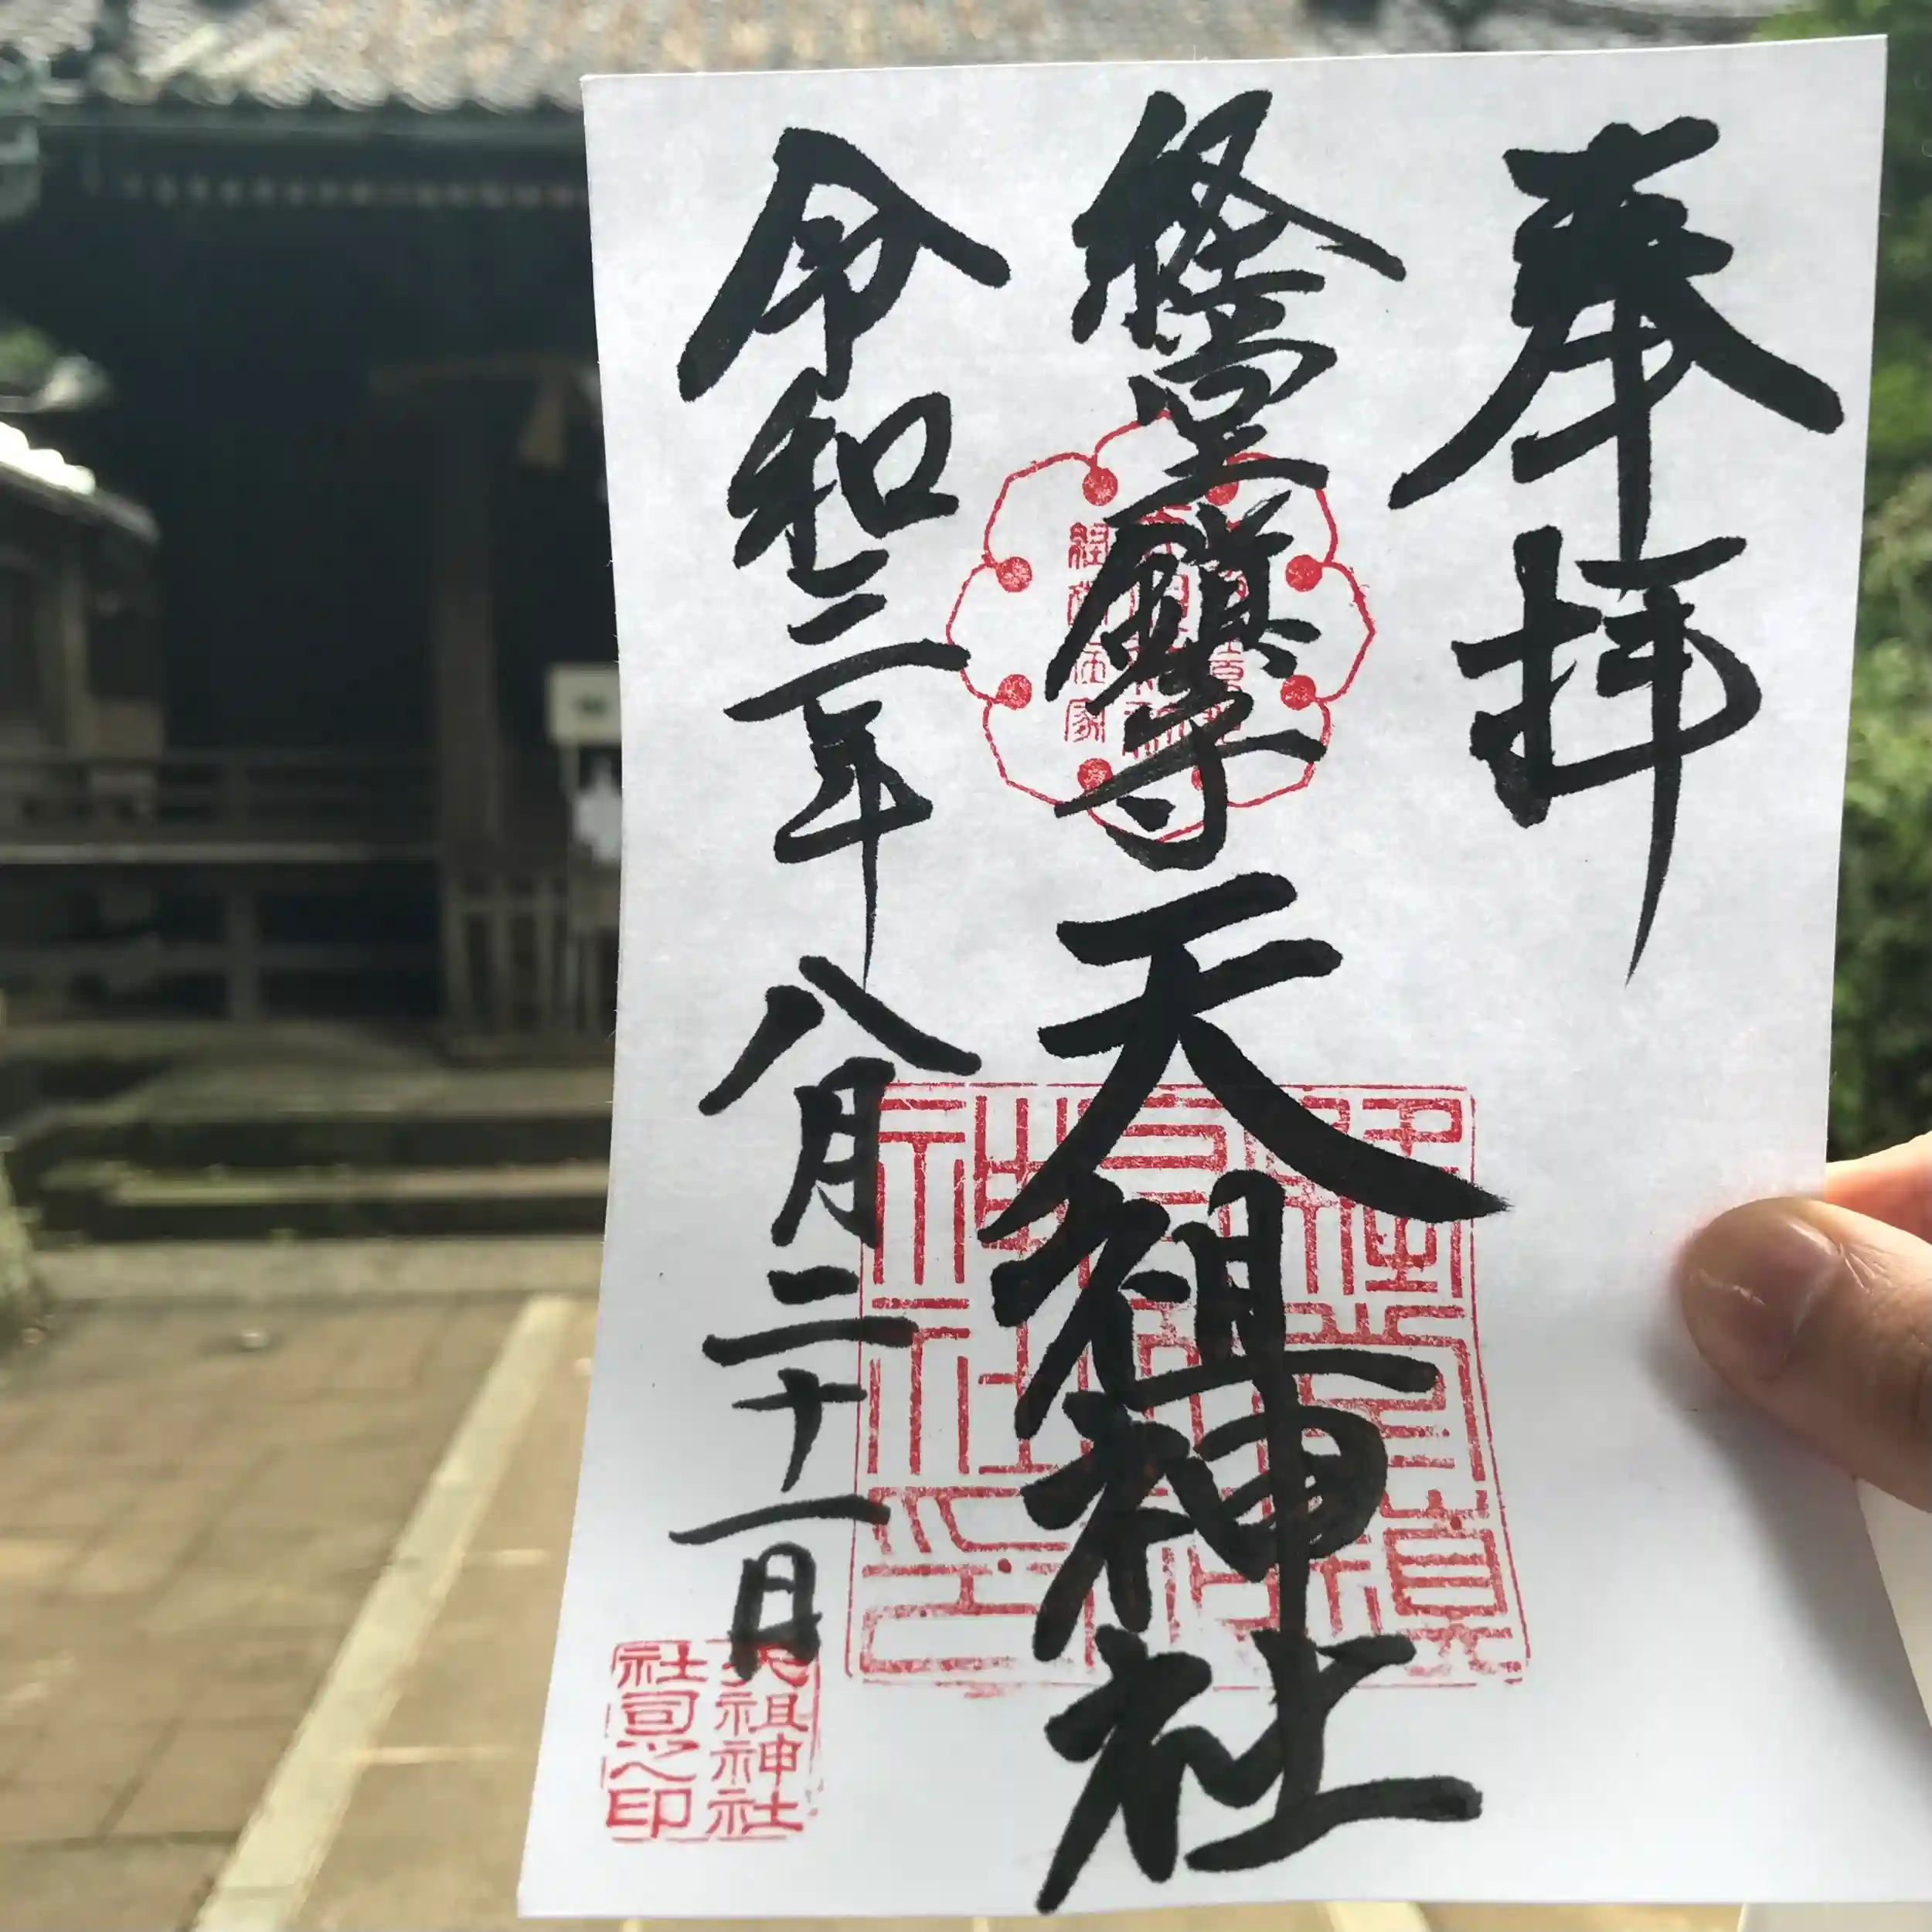 奉拝
経堂鎮守 天祖神社
令和三年八月二十一日
天祖神社
社司之印